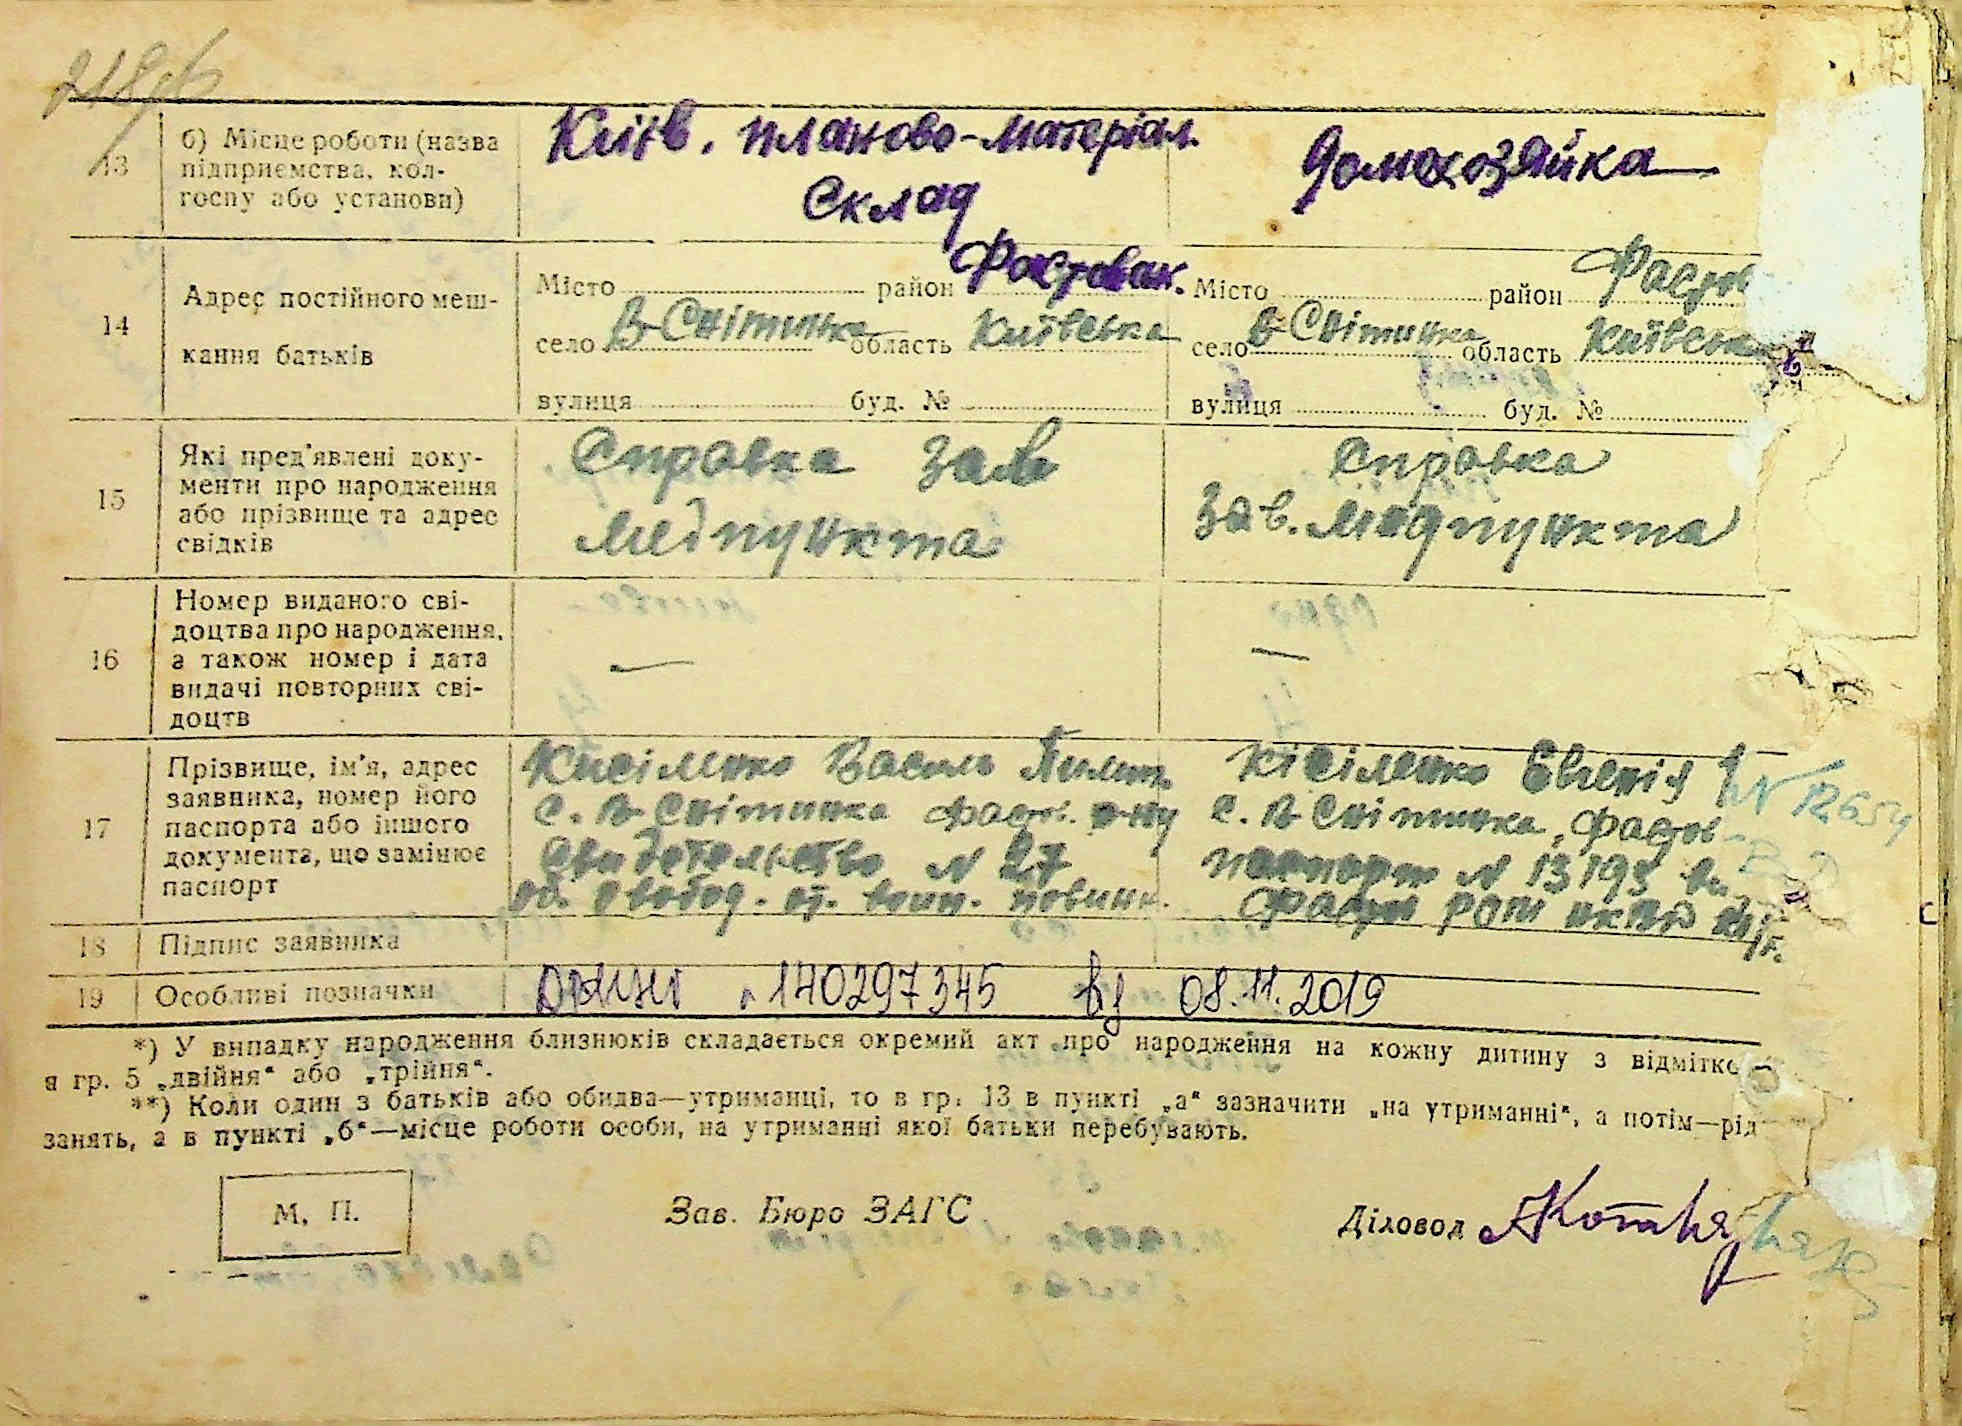 218
13
б) Місце роботи (назва
підприємства, кол-
госпу або установи)
Київ. планово-матеріал.
Склад
Домохозяйка
14
Адрес постійного меш-
кання батьків
Місто район Фастовск.
село В-Снітинка область Київська
вулиця буд. №
Місто район Фастов
село В-Снітинка область Київська
вулиця буд. №
15
Які пред'явлені доку-
менти про народження
або прізвище та адрес
свідків
Справка зав
медпункта
Справка
Зав. медпункта
16
Номер виданого сві-
доцтва про народження,
а також номер і дата
видачі повторних сві-
доцтв
—
—
17
Прізвище, ім'я, адрес
заявника, номер його
паспорта або іншого
документа, що замінює
паспорт
Кисіленко Василь Пилип.
с. В Снітинка Фастов. р-ну
Свидетельство N 27
об. освобод. от. воин. повинн.
Кісіленко Евгенія
с. В Снітинка, Фастов-
паспорт N 13195
РОМ НКВД
N 12654
18
Підпис заявника
19
Особливі позначки
140297345 від 08.11.2019
*) У випадку народження близнюків складається окремий акт про народження на кожну дитину з відмітко
я гр. 5 „двійня“ або „трійня“.
**) Коли один з батьків або обидва—утриманці, то в гр. 13 в пункті „а“ зазначити „на утриманні“, а потім—рід
занять, а в пункті „б“—місце роботи особи, на утриманні якої батьки перебувають.
М. П.
Зав. Бюро ЗАГС
Діловод